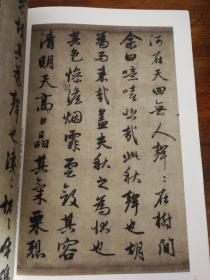 河在天四無人聲〻在樹間
余曰噫嘻悲哉此秋聲也胡
為乎来哉盖夫秋之為狀也
其色慘澹烟霏雲斂其容
清明天高日晶其氣栗冽